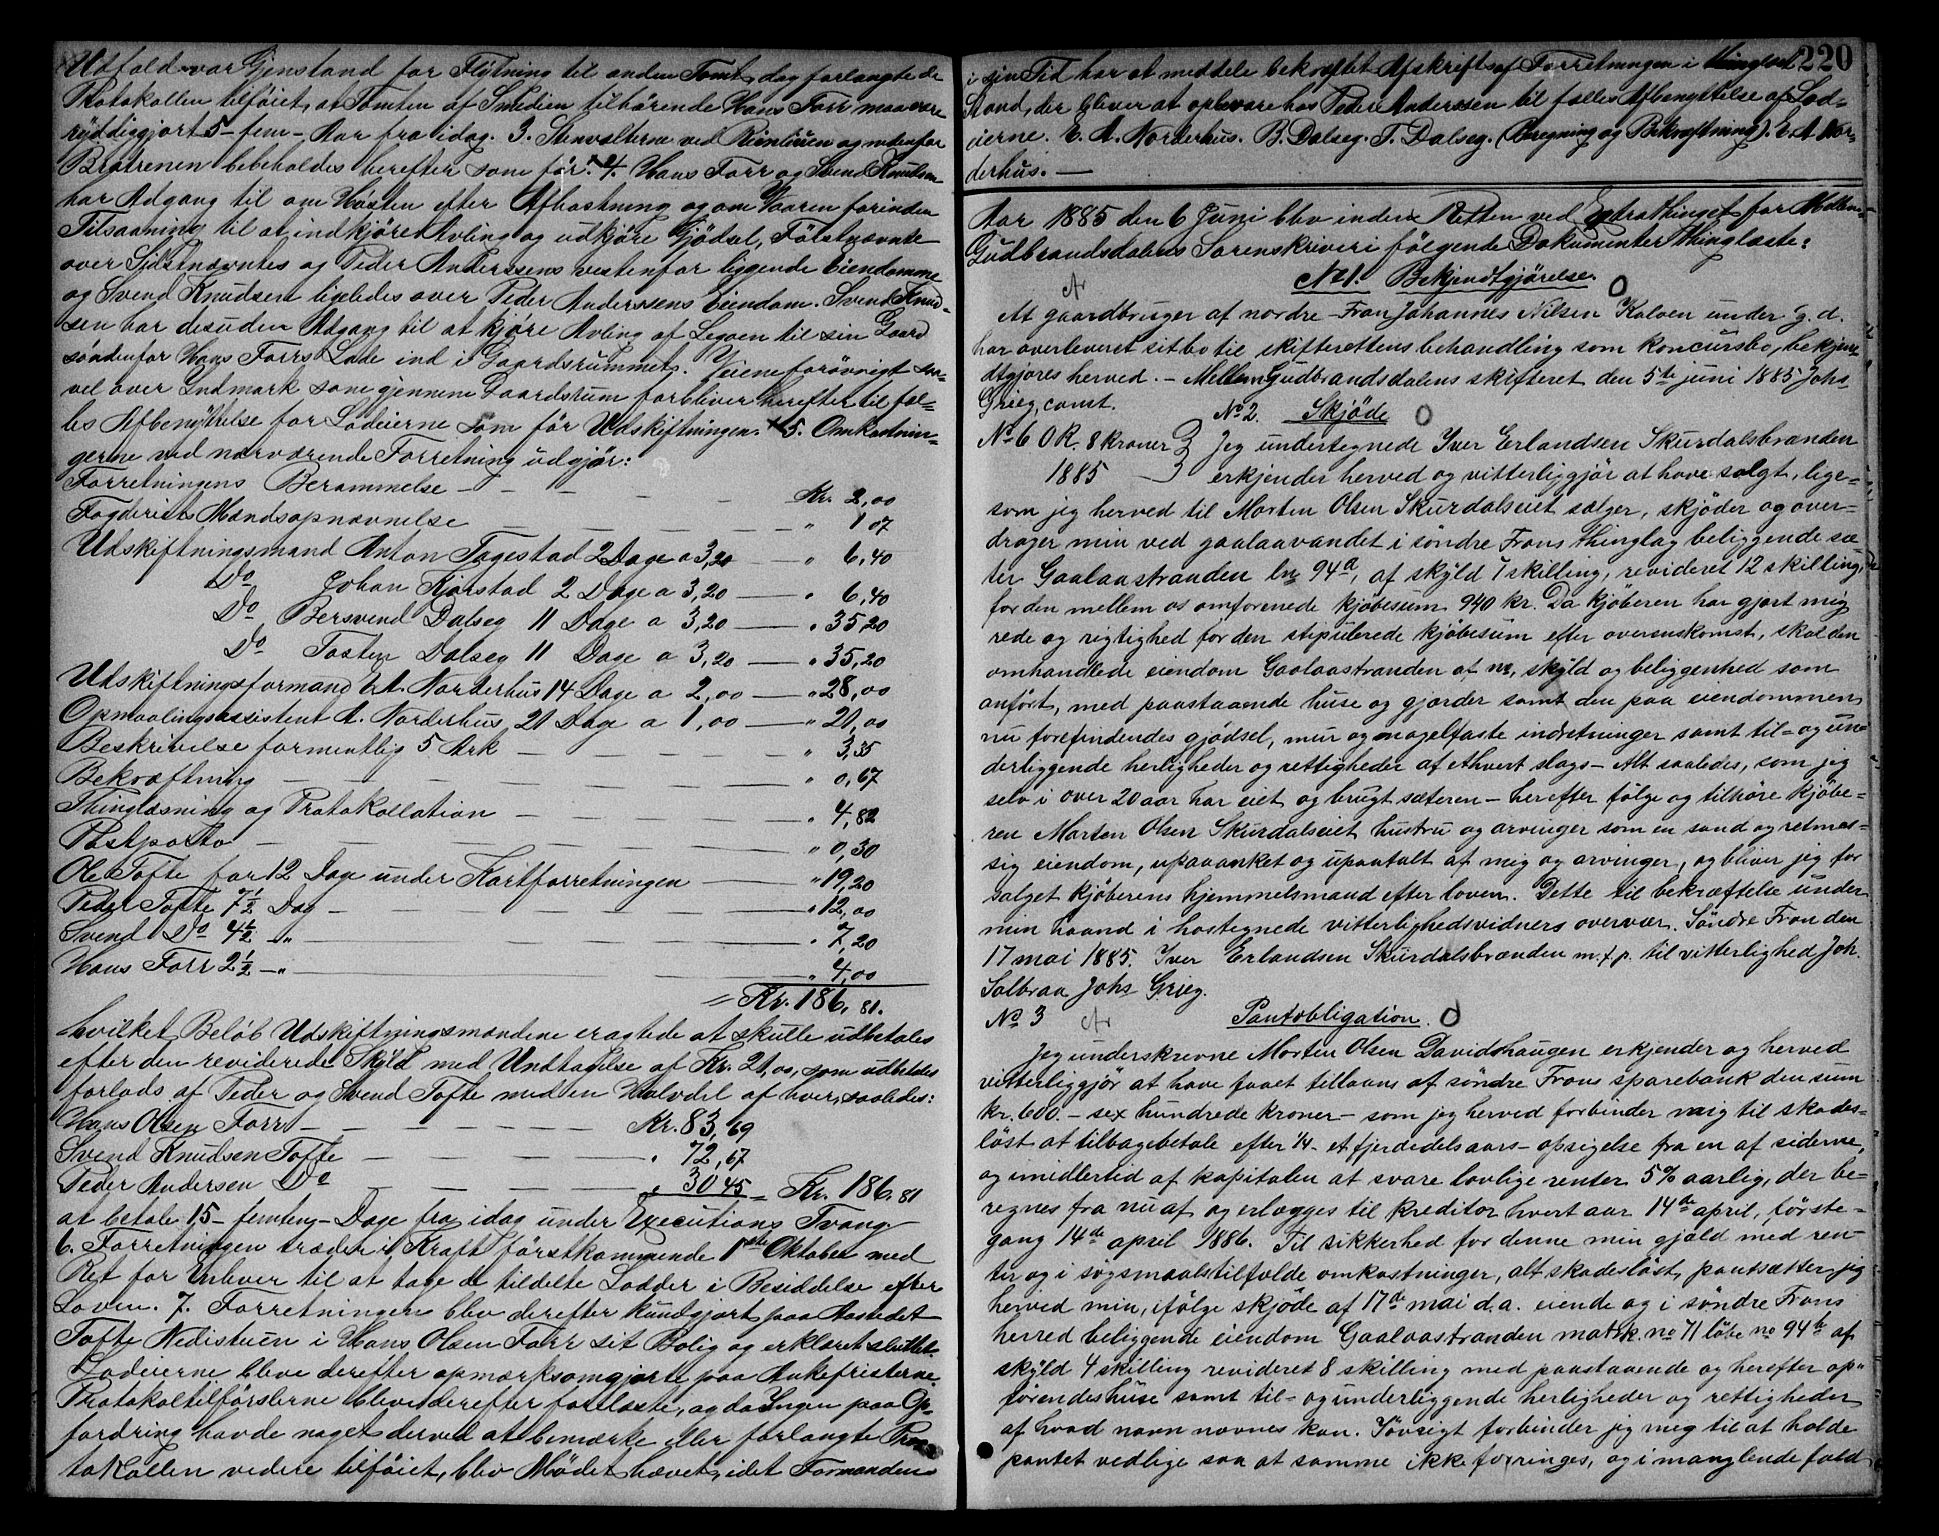 Udfald var Gjenstand for Flytning til anden Tomt, dog forlangte de
Protokollen tilføiet, at Tomten af Smedien tilhørende Hans Forr maa være
ryddiggjort 5 - fem - Aar fra idag. 3. Stenvalterne ved og nedenfor
Bratrenen bebeholdes herefter som før. 4. Hans Forr og Svend Knudsen
har Adgang til om Høsten efter Afhøstning og om Vaaren forinden
Tilsaaning til at indkjøre Avling og udkjøre Gjødsel, Førstnævnte
over Sidstnævntes og Peder Anderssens vestenfor liggende Eiendomme
og Svend Knudsen ligeledes over Peder Anderssens Eiendom. Svend Knud-
sen har desuden Adgang til at kjøre Avling af Legoen til sin Gaard
søndenfor Hans Forrs Lade ind i Gaardsrummet. Veiene forøvrigt saa-
vel over Indmark som gjennem Gaardstum forbliver herefter til fæl-
les Afbenyttelse for Lodeierne som før Udskiftningen. 5. Omkostnin-
gerne ved nærværende Forretning udgjør:
Forretningens Berammelse - - - - - Kr. 2,00
Fogderiets Mandsopnævnelse - - - - " 1 07
Udskiftningsmand Anton Tagestad 2 Dage a 3,20 - " 6,40
Do Johan Kjørstad 2 Dage a 3,20 - " 6,40
Do Bersvend Dalseg 11 Dage a 3,20 - " 35,20
Do Tosten Dalseg 11 Dage a 3,20 - " 35,20
Udskiftningsformand E. A. Norderhus 14 Dage a 2,00 - " 28,00
Opmaalingsassistent A. Norderhus, 20 Dage a 1,00 - " 20,00
Beskrivelse formentlig 5 Ark - - - " 3,35
Bekræftning - - - - " 0,67
Thinglæsning og Protokollation - - - " 4,82
Postporto - - - - " 0,30
Ole Tofte for 12 Dage under Kartforretningen - " 19,20
Peder Tofte 7½ Dag - - - " 12,00
Svend Do 4½ - " - - " 7,20
Hans Forr 2½ - " - - " 4,00
= Kr. 186,81.
hvilket Beløb Udskiftningsmændene eragtede at skulle udbetales
efter den reviderede Skyld med Undtagelse af Kr. 21,00, som udbeldes
forlods af Peder og Svend Tofte med en Halvdel af hver, saaledes:
Hans Olsen Forr - - - - - Kr. 83,69
Svend Knudsen Tofte - - - " 72,67
Peder Andersen Do - - " 30 45 = Kr. 186.81
at betale 15 - femten - Dage fra idag under Executions Tvang
6. Forretningen træder i Kraft førstkommende 1ste Oktober med
Ret for Enhver til at tage de tildelte Lodder i Besiddelse efter
Loven. 7. Forretningen blev derefter kundgjort paa Aastedet
Tofte Nedistuen i Hans Olsen Forr sit Bolig og erklæret sluttet.
Lodeierne blev derefter opmærksomgjorte paa Ankefristerne
Protokoltilførslerne blev derefter forelæste, og da Ingen paa Op-
fordring havde noget derved at bemærke eller forlangte Pro-
tokollen videre tilføiet, blev Mødet hævet, idet Formanden
220
i sin Tid har at meddele bekræftet Afskrift af Forretningen i thinglæst
Stand, der bliver at opbevare hos Peder Anderssen til fælles Afbenyttelse af Lod-
eierne. E. A. Norderhus. B. Dalseg. T. Dalseg. (Beregning og Bekræftning). E. A Nor-
derhus. -
Aar 1885 den 6 Juni blev inden Retten ved Extrathinget for Mellem-
Gudbrandsdalens Sorenskriveri følgende Dokumenter thinglæste:
No 1. Bekjendtgjørelse.
At gaardbruger af nordre Fron Johannes Nilsen Kalven under g. d.
har overleveret sit bo til skifterettens behandling som koncursbo, bekjen-
dtgjøres herved. - Mellem Gudbrandsdalens skifteret den 5te juni 1885 Johs
Grieg, const.
No 2. Skjøde
No 6 O R. 8 kroner Jeg undertegnede Iver Erlandsen Skurdalsbrænden
1885 - erkjender herved og vitterliggjør at have solgt, lige-
som jeg herved til Morten Olsen Skurdalseiet sælger, skjøder og over-
drager min ved gaalaavandet i søndre Frons thinglag beliggende sæ-
ter Gaalaastranden lnr 94a, af skyld 1 skilling, revideret 12 skilling,
for den mellem os omforenede kjøbesum 940 kr. Da kjøberen har gjort mig
rede og rigtighed for den stipulerede kjøbesum efter overenskomst, skal den
omhandlede eiendom Gaalaastranden af nr, skyld og beliggenhed som
anført, med paastaaende huse og gjærder samt den paa eiendommen
nu forefindendes gjødsel, mur og nagelfaste indretninger samt til- og un-
derliggende herligheder og rettigheder af ethvert slags - Alt saaledes, som jeg
selv i over 20 aar har eiet og brugt sæteren - herefter følge og tilhøre kjøbe-
ren Morten Olsen Skurdalseiet hustru og arvinger som en sand og retmæs-
sig eiendom, upaaanket og upaatalt af mig og arvinger, og bliver jeg for
salget kjøberens hjemmelsmand efter loven. Dette til bekræftelse under
min haand i hostegnede vitterlighedsvidners overvær. Søndre Fron den
17 mai 1885. Iver Erlandsen Skurdalsbrænden m.f.p. til vitterlighed Joh.
Solbraa Johs Grieg.
No 3 Pantobligation.
Jeg underskrevne Morten Olsen Davidshaugen erkjender og herved
vitterliggjør at have faaet tillaans af søndre Frons sparebank den sum
kr. 600. - sex hundrede kroner - som jeg herved forbinder mig til skades-
løst at tilbagebetale efter ¼ - et fjerdedelsaars - opsigelse fra en af siderne,
og imidlertid af kapitalen at svare lovlige renter 5% aarlig, der be-
regnes fra nu af og erlægges til kreditor hvert aar 14de april, første-
gang 14de april 1886. Til sikkerhed for denne min gjæld med ren-
ter og i søgsmaalstilfælde omkostninger, alt skadesløst, pantsætter jeg
herved min, ifølge skjøde af 17de mai d.a. eiende og i søndre Frons
herred beliggende eiendom Gaalaastranden matrk. no 71 løbe no 94b af
skyld 4 skilling revideret 8 skilling med paastaaende og herefter op-
førendes huse samt til- og underliggende herligheder og rettigheder
af hvad navn nævnes kan. Iøvrigt forbinder jeg mig til at holde
pantet vedlige saa at samme ikke forringes, og i manglende fald